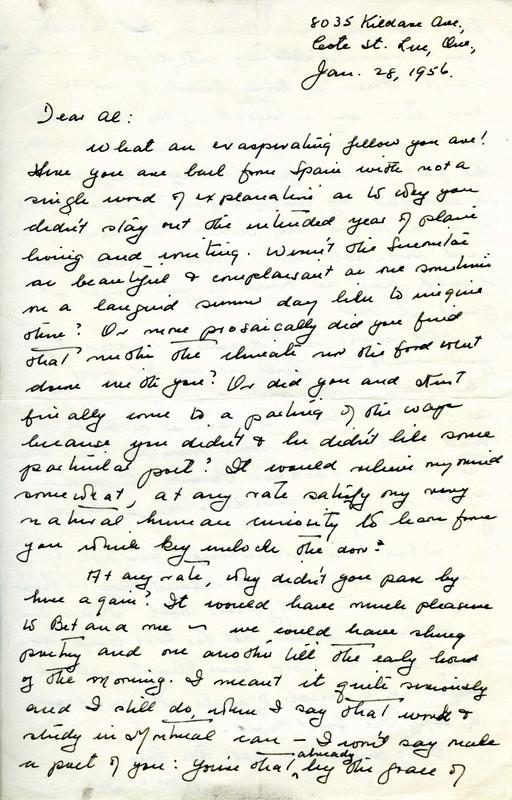 8035 Kildare Ave.,
Cote St. Luc, Que.,
Jan. 28, 1956.
Dear Al:
What an exasperating fellow you are!
Here you are back from Spain with not a
single word of explanation as to why you
didn't stay out the intended year of plain
living and writing. Weren't the Senoritas
as beautiful & complaisant as one sometimes
on a languid summer day likes to imagine
them? Or more prosaically did you find
that neither the climate nor the food went
down with you? Or did you and
finally come to a parting of the ways
because you didn't & he didn't like some
particular poet? It would relieve my mind
somewhat, at any rate satisfy my very
natural human curiosity to learn from
you which key unlocks the door?
At any rate, why didn't you pass by
here again? It would have much pleasure
to Bet and me — we would have slung
poetry and one another till the early hours
of the morning. I meant it quite seriously
and I still do, when I say that work &
study in Montreal can — I won't say make
a poet of you: You're that already by the grace of